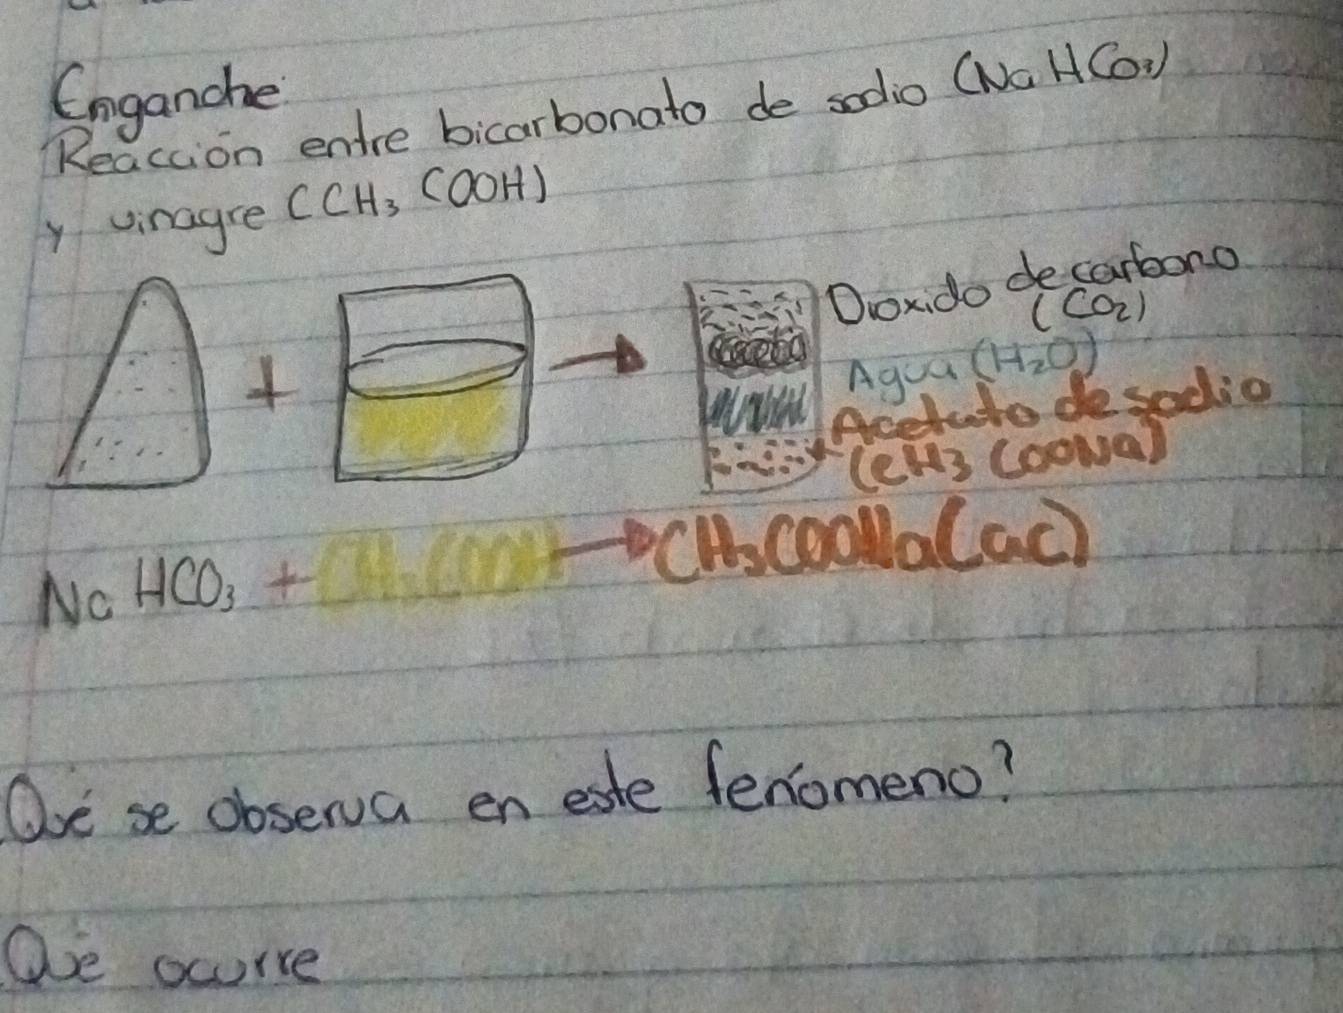 Enganche:
Reacción entre bicarbonato de sodio (NaHCO₃)
y vinagre (CH₃COOH)
Dioxido de carbono
(CO₂)
Agua (H₂O)
Acetato de sodio
(CH₃COONa)
NaHCO₃ + CH₃COOH → CH₃COONa(ac)
Qué se observa en este fenómeno?
Qué ocurre